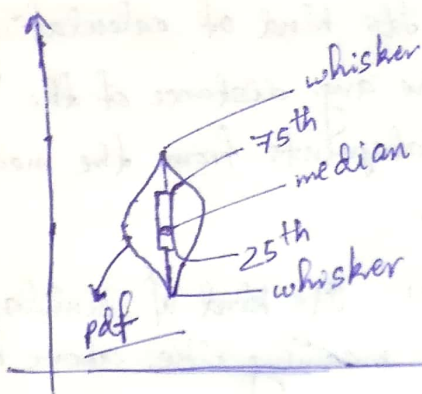 whisker
75th
median
25th
whisker
pdf